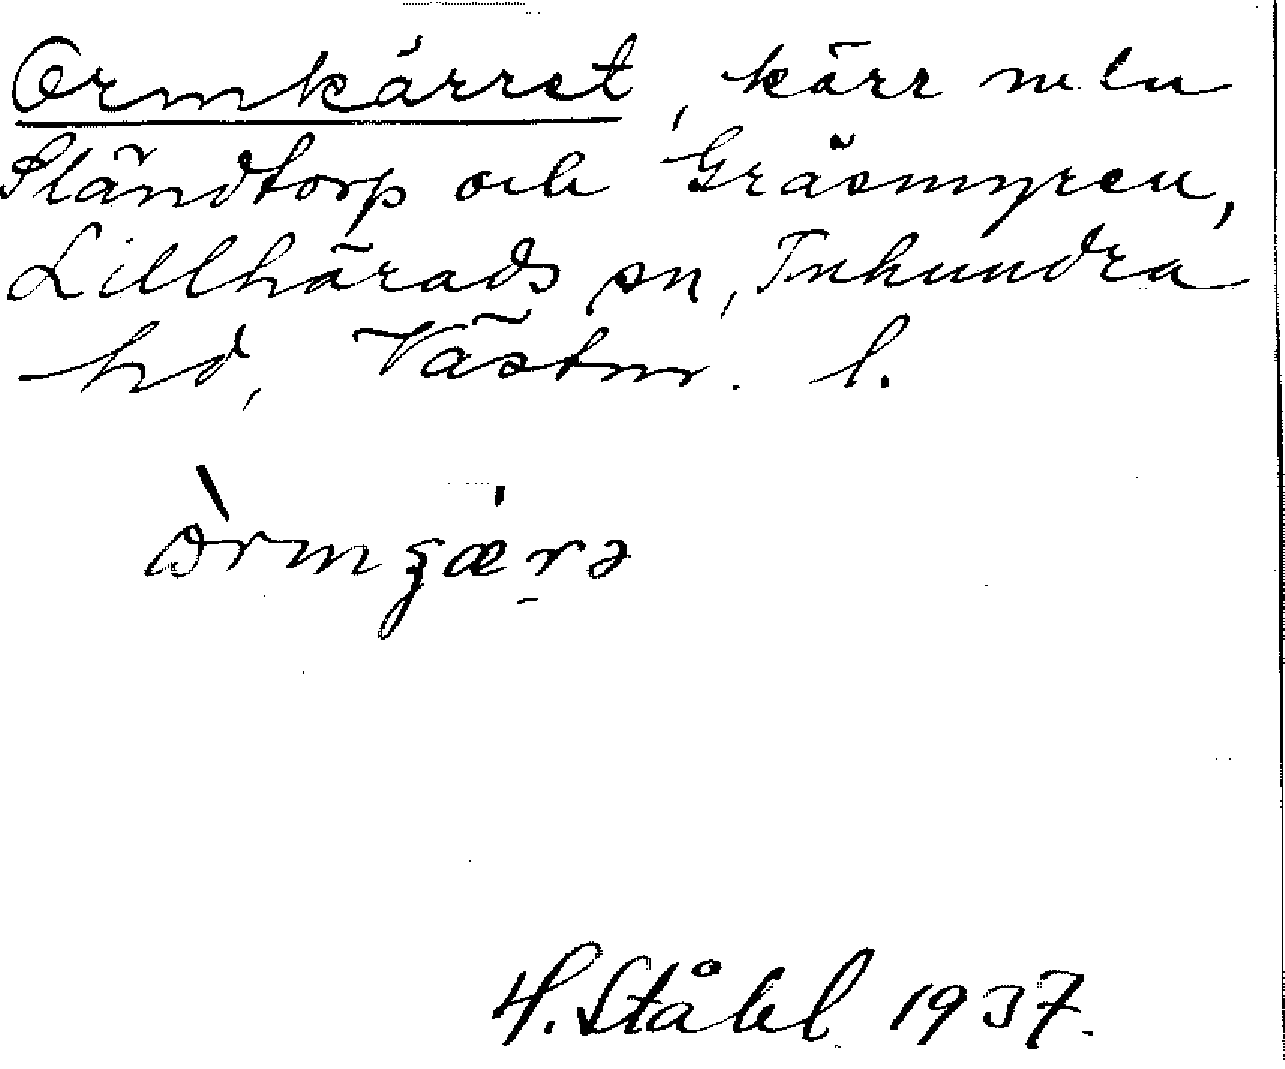 Ormkärret, kärr mln
Ständtorp och Gräsmyren,
Lillhärads sn, Tuhundra
hd, Västm. l.
òrmʒæ̀rə
H. Ståhl 1937.